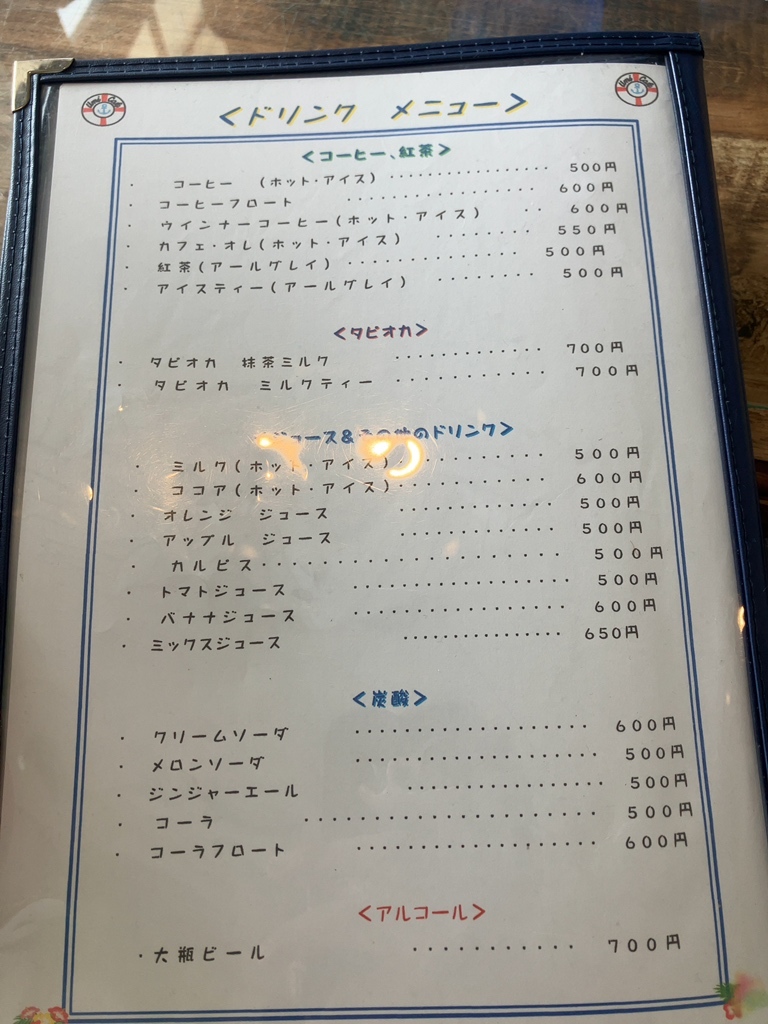 Umi Cafe
Umi Cafe
<ドリンク メニュー>
<コーヒー、紅茶>
・ コーヒー (ホット・アイス) ・・・・・・・・・・・・・・・・ 500円
・ コーヒーフロート ・・・・・・・・・・・・・・・・ 600円
・ ウインナーコーヒー(ホット・アイス) ・・ 600円
・ カフェ・オレ(ホット・アイス) ・・・・・・・・・ 550円
・ 紅茶(アールグレイ) ・・・・・・・・・・・・・・ 500円
・ アイスティー(アールグレイ) ・・・・・・・・・ 500円
<タピオカ>
・ タピオカ 抹茶ミルク ・・・・・・・・・・・・ 700円
・ タピオカ ミルクティー ・・・・・・・・・・・・ 700円
ジュース&その他のドリンク>
・ ミルク(ホット・アイス)・・・・・・・・・・・・ 500円
・ ココア(ホット・アイス)・・・・・・・・・・・・ 600円
・ オレンジ ジュース ・・・・・・・・・・・・ 500円
・ アップル ジュース ・・・・・・・・・・・・ 500円
・ カルピス・・・・・・・・・・・・・・・・・・・ 500円
・ トマトジュース ・・・・・・・・・・・・・・・・ 500円
・ バナナジュース ・・・・・・・・・・・・・・・・ 600円
・ ミックスジュース ・・・・・・・・・・・・・・ 650円
<炭酸>
・ クリームソーダ ・・・・・・・・・・・・・・・・・ 600円
・ メロンソーダ ・・・・・・・・・・・・・・・・・ 500円
・ ジンジャーエール ・・・・・・・・・・・・・・ 500円
・ コーラ ・・・・・・・・・・・・・・・・・・・・ 500円
・ コーラフロート ・・・・・・・・・・・・・・・・・ 600円
<アルコール>
・大瓶ビール ・・・・・・・・・・・ 700円